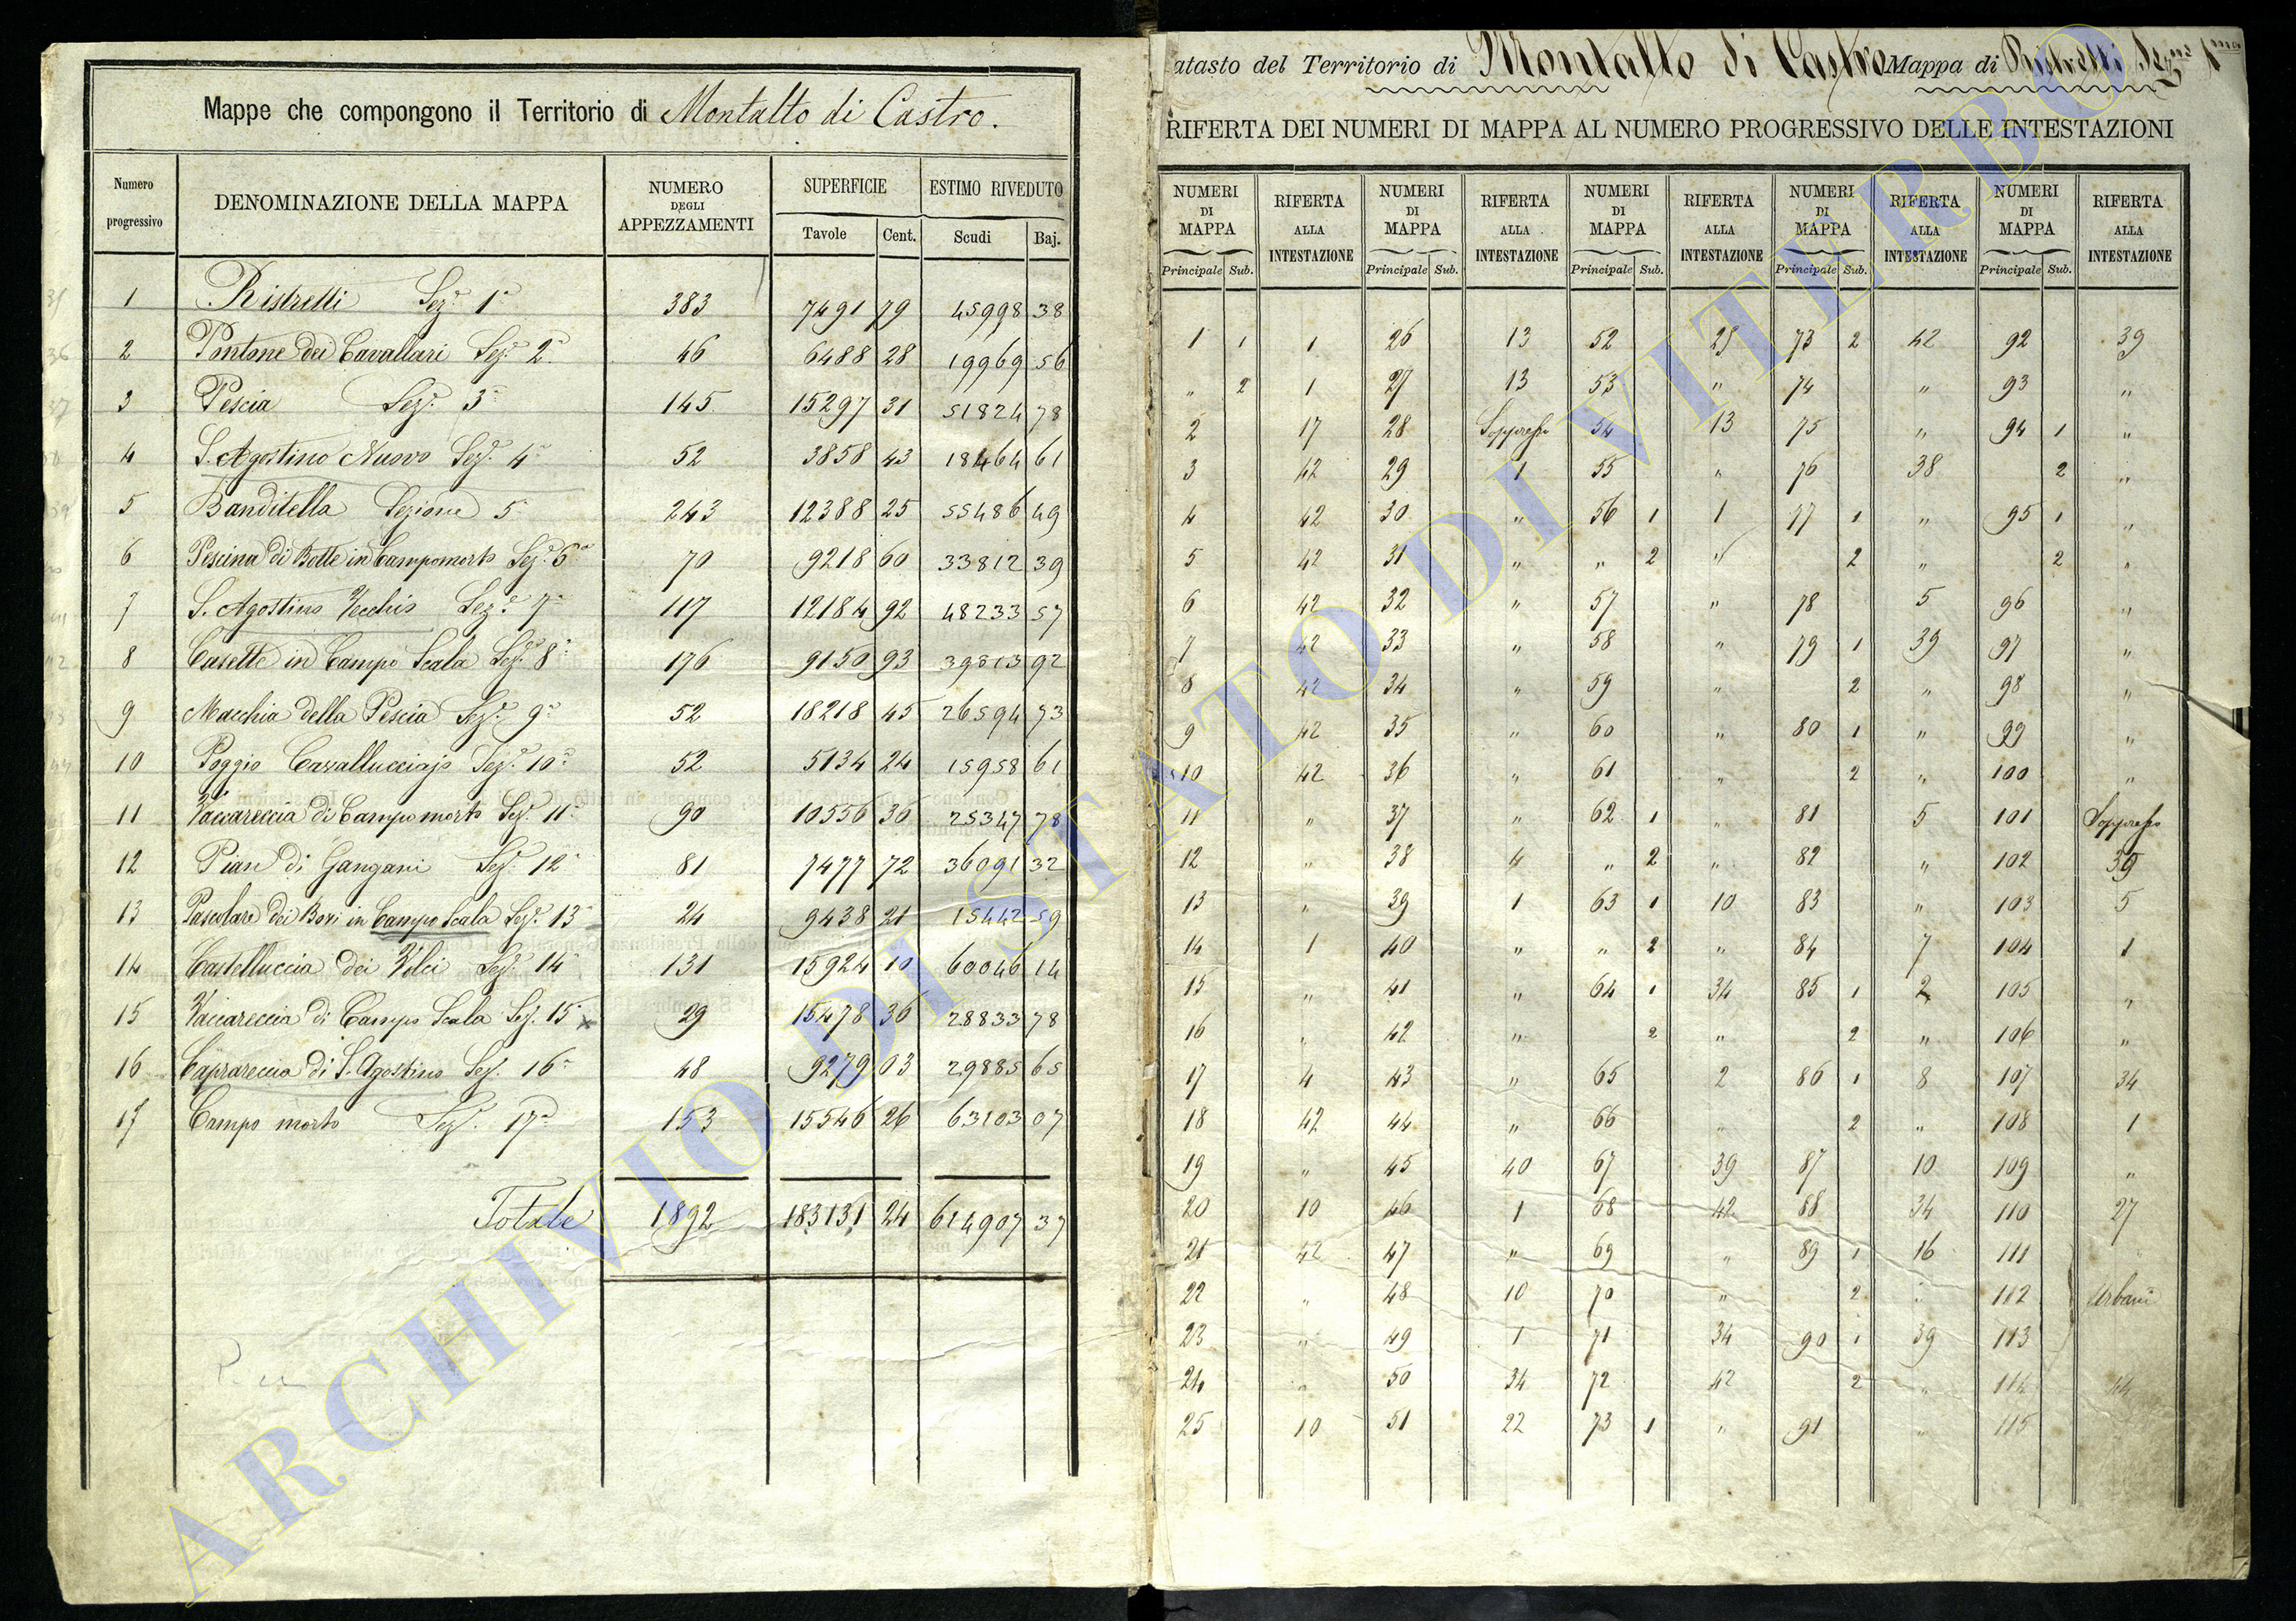 Mappe che compongono il Territorio di Montalto di Castro.
Numero progressivo DENOMINAZIONE DELLA MAPPA NUMERO DEGLI APPEZZAMENTI SUPERFICIE ESTIMO RIVEDUTO
Tavole Cent. Scudi Baj.
1 Ristretti Sez.e 1a 383 7491 79 45998 38
2 Pontone dei Cavallari Sez.e 2a 46 6488 28 19969 56
3 Pescia Sez.e 3a 145 15297 31 51824 78
4 S. Agostino Nuovo Sez.e 4a 52 3858 43 18464 61
5 Banditella Sezione 5a 243 12388 25 55486 49
6 Pescina di Botte in Campomorto Sez.e 6a 70 9218 60 33812 39
7 S. Agostino Vecchio Sez.e 7a 117 12184 92 48233 57
8 Casette in Campo Scala Sez.e 8a 176 9150 93 39813 92
9 Macchia della Pescia Sez.e 9a 52 18218 45 26594 73
10 Poggio Cavallucciajo Sez.e 10a 52 5134 24 15958 61
11 Vaccareccia di Campomorto Sez.e 11a 90 10556 36 25347 78
12 Pian di Gangani Sez.e 12a 81 7477 72 36091 32
13 Pascolare dei Bovi in Campo Scala Sez.e 13a 24 9438 21 15442 59
14 Castelluccia dei Volci Sez.e 14a 131 15924 10 60046 14
15 Vaccareccia di Campo Scala Sez. 15a 29 15478 36 28833 78
16 Caprareccia di S. Agostino Sez. 16a 48 9279 03 29885 65
17 Campo morto Sez.e 17a 153 15546 26 63103 07
Totale 1892 183131 24 614907 37
atasto del Territorio di Montalto di Castro Mappa di Ristretti Sez.ne 1ma
RIFERTA DEI NUMERI DI MAPPA AL NUMERO PROGRESSIVO DELLE INTESTAZIONI
NUMERI DI MAPPA RIFERTA ALLA INTESTAZIONE NUMERI DI MAPPA RIFERTA ALLA INTESTAZIONE NUMERI DI MAPPA RIFERTA ALLA INTESTAZIONE NUMERI DI MAPPA RIFERTA ALLA INTESTAZIONE NUMERI DI MAPPA RIFERTA ALLA INTESTAZIONE
Principale Sub. Principale Sub. Principale Sub. Principale Sub. Principale Sub.
1 1 1 26 13 52 25 73 2 42 92 39
" 2 1 27 13 53 " 74 " 93 "
2 17 28 Soppresso 54 13 75 " 94 1 "
3 42 29 1 55 " 76 38 2 "
4 42 30 " 56 1 1 77 1 " 95 1 "
5 42 31 " " 2 " 2 " 2 "
6 42 32 " 57 " 78 5 96 "
7 42 33 " 58 " 79 1 39 97 "
8 42 34 " 59 " 2 " 98 "
9 42 35 " 60 " 80 1 " 99 "
10 42 36 " 61 " 2 " 100 "
11 " 37 " 62 1 " 81 5 101 Soppresso
12 " 38 4 " 2 " 82 " 102 39
13 " 39 1 63 1 10 83 " 103 5
14 1 40 " " 2 " 84 7 104 1
15 " 41 " 64 1 34 85 1 2 105 "
16 " 42 " 2 " 2 " 106 "
17 4 43 " 65 2 86 1 8 107 34
18 42 44 " 66 " 2 " 108 1
19 " 45 40 67 39 87 10 109 "
20 10 46 1 68 42 88 34 110 27
21 42 47 " 69 " 89 1 16 111
22 " 48 10 70 " 2 " 112 Urbani
23 " 49 1 71 34 90 1 39 113
24 " 50 34 72 42 2 " 114 44
25 10 51 22 73 1 " 91 " 115
ARCHIVIO DI STATO DI VITERBO